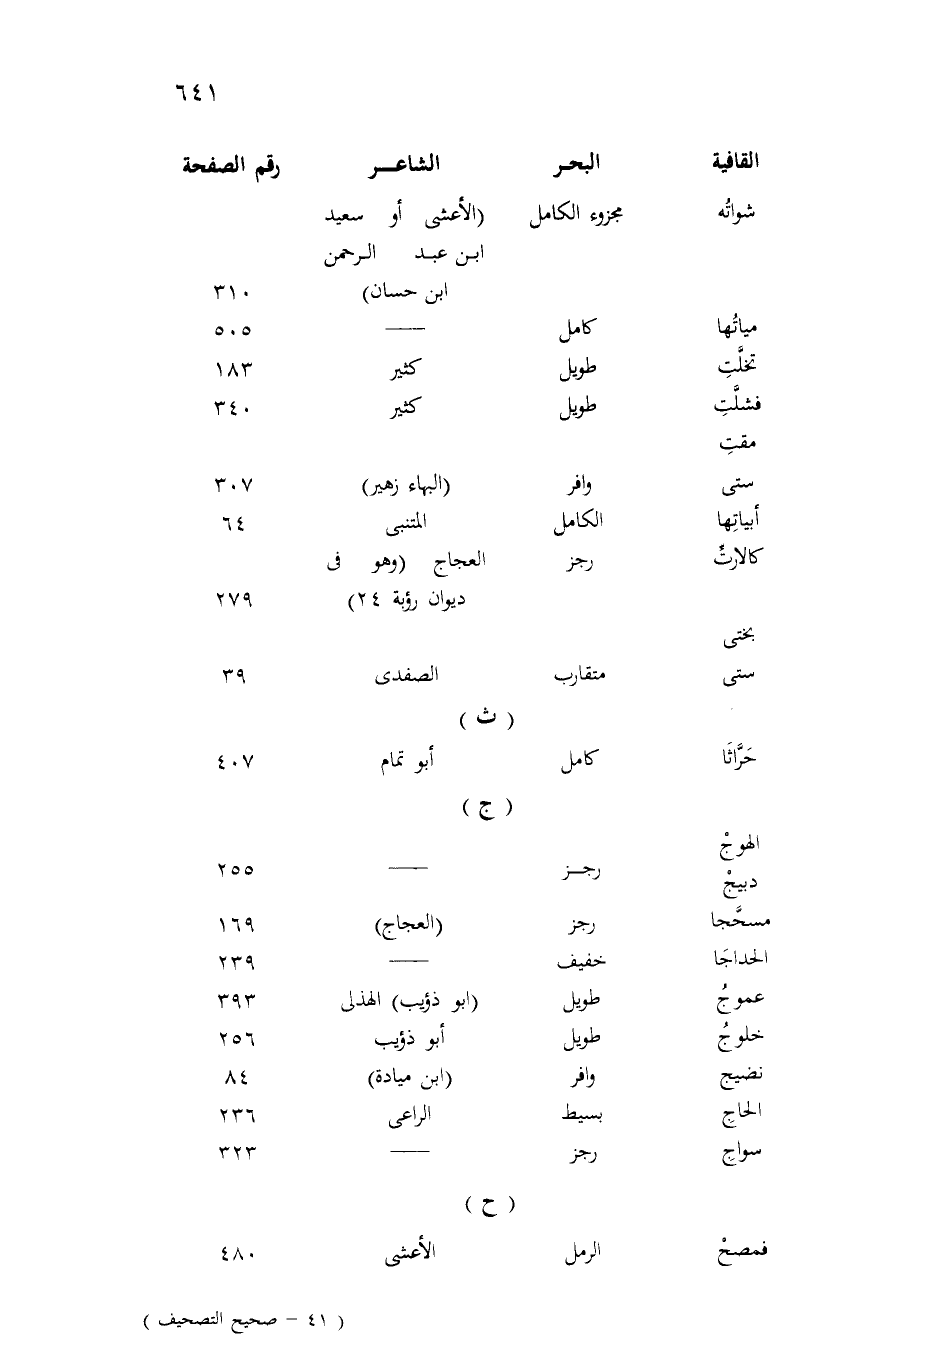 ٦٤١
القافية البحر الشاعـــر رقم الصفحة
شواتُه مجزوء الكامل (الأعشى أو سعيد
ابـن عبـد الـرحمن
ابن حسان) ٣١٠
مياتُها كامل —— ٥٠٥
تخلَّتِ طويل كثير ١٨٣
فشلَّتِ طويل كثير ٣٤٠
مقتِ
ستى وافر (البهاء زهير) ٣٠٧
أبياتِها الكامل المتنبى ٦٤
كالارتِّ رجز العجاج (وهو فى
ديوان رؤبة ٢٤) ٢٧٩
بختى
ستى متقارب الصفدى ٣٩
( ث )
حَرَّاثَا كامل أبو تمام ٤٠٧
( ج )
الهوجْ
رجــز —— ٢٥٥
دبيجْ
مسحَّجا رجز (العجاج) ١٦٩
الحداجَا خفيف —— ٢٣٩
عموجُ طويل (ابو ذؤيب) الهذلى ٣٩٣
خلوجُ طويل أبو ذؤيب ٢٥٦
نضيج وافر (ابن ميادة) ٨٤
الحاجِ بسيط الراعى ٢٣٦
سواجِ رجز —— ٣٢٣
( ح )
فمصحْ الرمل الأعشى ٤٨٠
( ٤١ – صحيح التصحيف )